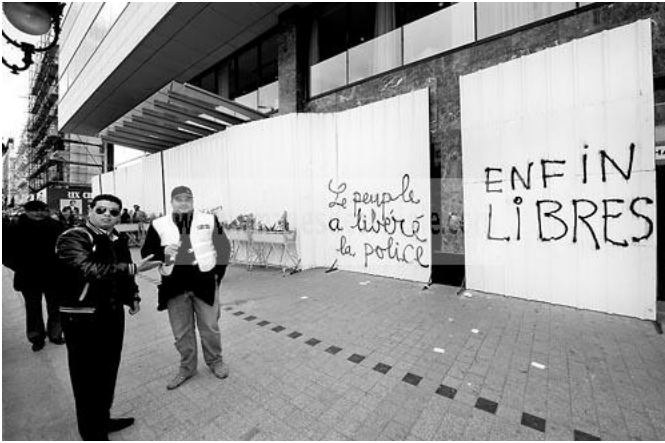 Le peuple
a libéré
la police
ENFIN
LIBRES